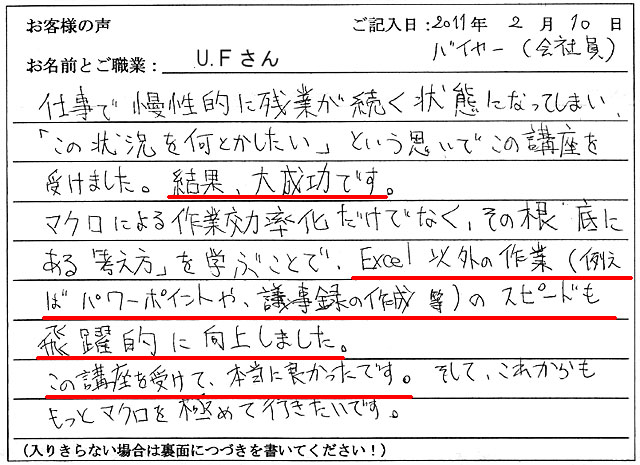 お客様の声 ご記入日:2011年 2月 10日
お名前とご職業: U.Fさん バイヤー (会社員)
仕事で慢性的に残業が続く状態になってしまい、
「この状況を何とかしたい」という思いでこの講座を
受けました。結果、大成功です。
マクロによる作業効率化だけでなく、その根底に
ある「考え方」を学ぶことで、Excel以外の作業(例え
ばパワーポイントや、議事録の作成 等)のスピードも
飛躍的に向上しました。
この講座を受けて、本当に良かったです。そして、これからも
もっとマクロを極めて行きたいです。
(入りきらない場合は裏面につづきを書いてください!)